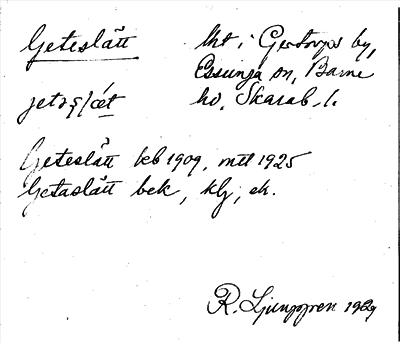 Geteslätt lht i Gertorps by,
Essunga sn, Barne
jetəsḷæt hd, Skarab. l.
Geteslätt keb 1909, mtl 1925
Getaslätt bek, klj, ek.
R. Ljunggren 1929